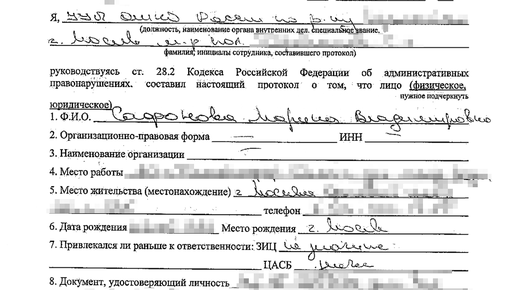 Я, УУП ОМВД России по р-ну
(должность, наименование органа внутренних дел, специальное звание,
г. Москве м-р пол.
фамилия, инициалы сотрудника, составившего протокол)
руководствуясь ст. 28.2 Кодекса Российской Федерации об административных
правонарушениях. составил настоящий протокол о том, что лицо (физическое,
нужное подчеркнуть
юридическое)
1. Ф.И.О. Сафронова Марина Владимировна
2. Организационно-правовая форма — ИНН —
3. Наименование организации —
4. Место работы
5. Место жительства (местонахождение) г. Москва
телефон
6. Дата рождения Место рождения г. Москва
7. Привлекался ли раньше к ответственности: ЗИЦ не значится
ЦАСБ
8. Документ, удостоверяющий личность